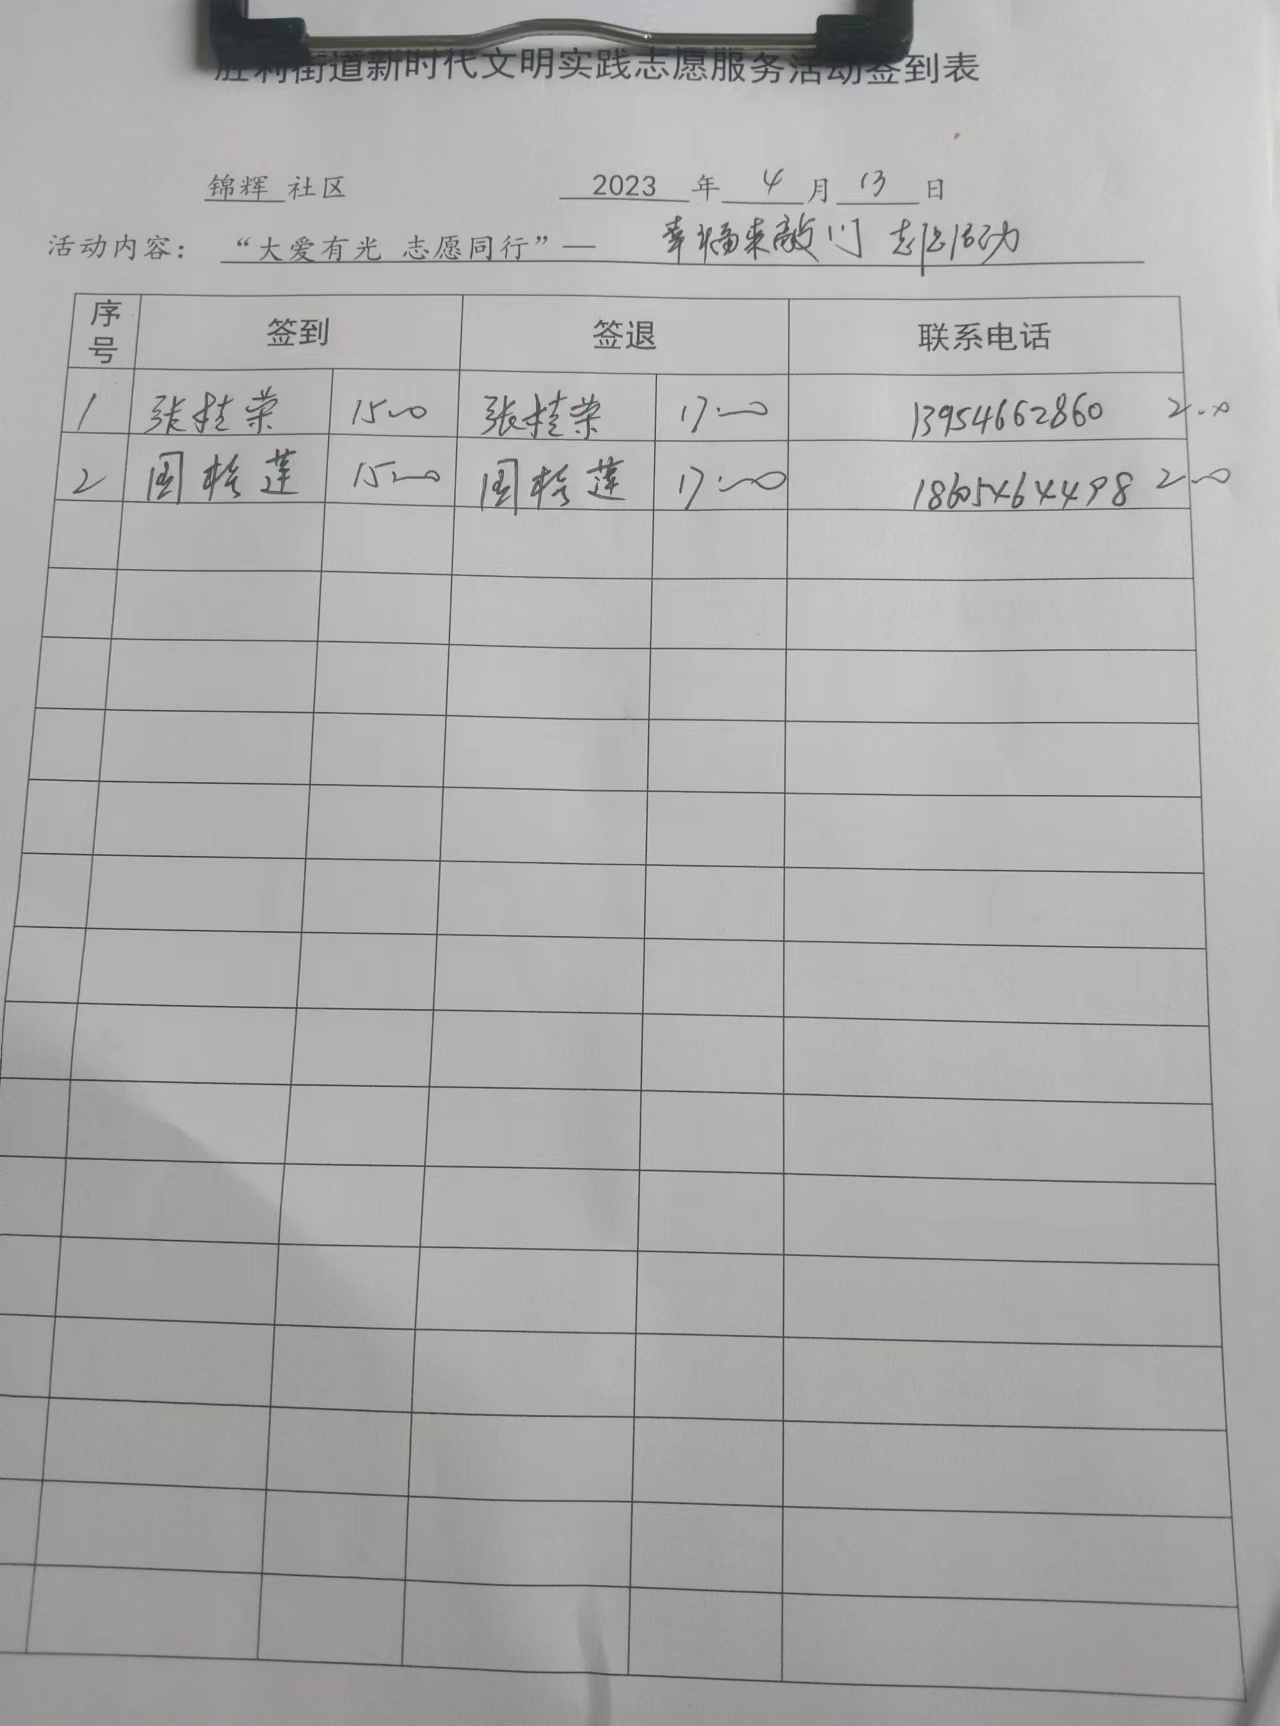 胜利街道新时代文明实践志愿服务活动签到表
锦辉 社区 2023 年 4 月 13 日
活动内容： “大爱有光 志愿同行”— 幸福来敲门 志愿活动
序号 签到 签退 联系电话
1 张桂荣 15:00 张桂荣 17:00 13954662860 2:00
2 周格莲 15:00 周格莲 17:00 18605464498 2:00